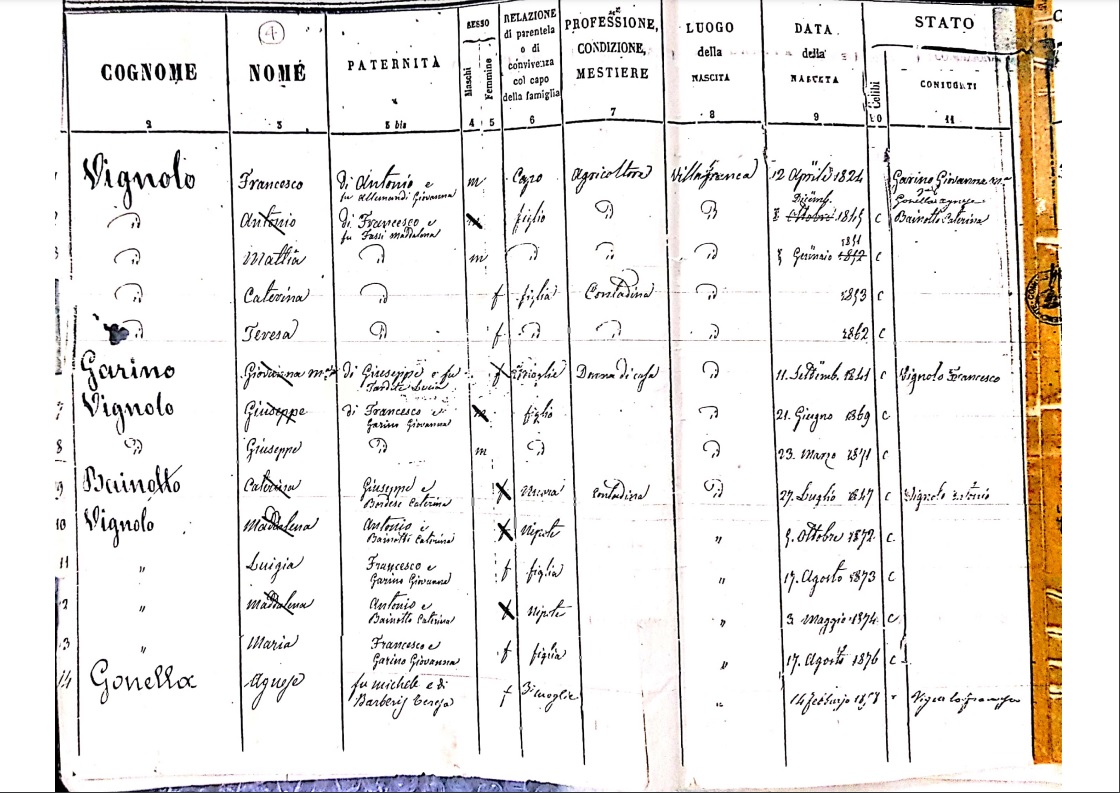 4
COGNOME NOME PATERNITÀ SESSO Maschi Femmine RELAZIONE di parentela o di convivenza col capo della famiglia PROFESSIONE, CONDIZIONE, MESTIERE LUOGO della NASCITA DATA della NASCITA STATO Celibi CONIUGATI
2 3 3 bis 4 5 6 7 8 9 10 11
Vignolo Francesco di Antonio e m Capo Agricoltore Villafranca 12 Aprile 1824 Garino Giovanna
fu Allemandi Giovanna Dicemb. Gonella Agnese
" Antonio di Francesco e m figlio " " Ottobre 1845 c Bainotto Caterina
fu Fassi Maddalena
" Mattia " m " " Gennaio 1852 c
1851
" Caterina " f figlia Contadina " 1853 c
" Teresa " f " " " 1862 c
Garino Giovanna di Giuseppe e fu f moglie Donna di casa " 11. Settemb. 1841 c Vignolo Francesco
Lucia
7 Vignolo Giuseppe di Francesco e figlio " 21. Giugno 1869 c
Garino Giovanna
8 " Giuseppe " m " " 23. Marzo 1871 c
9 Bainotto Caterina Giuseppe e Nuora Contadina " 27. Luglio 1847 c Vignolo Antonio
Bordese Caterina
10 Vignolo Maddalena Antonio e Nipote " Ottobre 1872 c.
Bainotti Caterina
11 " Luigia Francesco e f figlia " 17. Agosto 1873 c
Garino Giovanna
2 " Maddalena Antonio e Nipote " 3 Maggio 1874 c.
Bainotto Caterina
3 " Maria Francesco e f figlia " 17. Agosto 1876 c
Garino Giovanna
14 Gonella Agnese fu Michele e di f moglie " 14 Febbraio Vignolo
Barberis Teresa